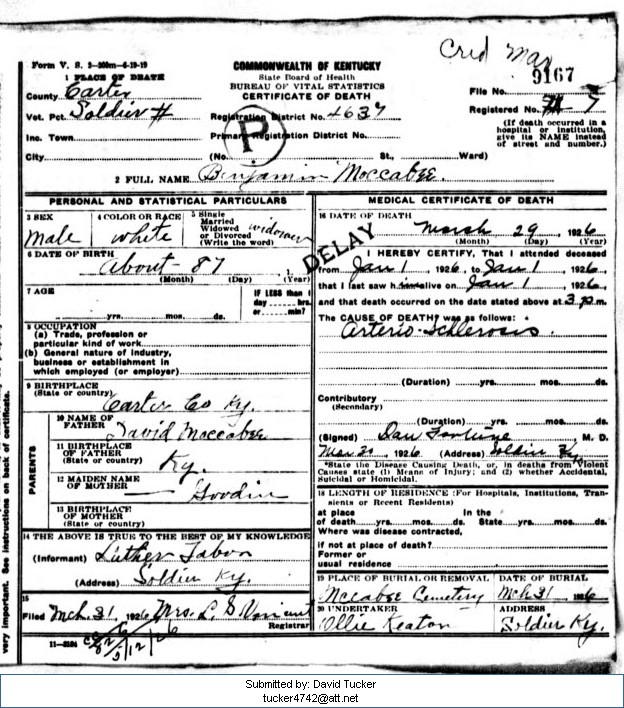 Cred Mar
Form V. S. 3-300m-6-19-19
COMMONWEALTH OF KENTUCKY
State Board of Health
BUREAU OF VITAL STATISTICS
CERTIFICATE OF DEATH
9167
1 PLACE OF DEATH
County Carter
File No.
Vot. Pct. Soldier #
Registration District No. 4637
Registered No. 7
Inc. Town
Primary Registration District No.
(If death occurred in a hospital or institution, give its NAME instead of street and number.)
City
(No. St., Ward)
P
2 FULL NAME Benjamin Moccabee.
PERSONAL AND STATISTICAL PARTICULARS
3 SEX
Male
4 COLOR OR RACE
white
5 Single
Married
Widowed
or Divorced
(Write the word)
widower
6 DATE OF BIRTH
About - 87
(Month) (Day) (Year)
7 AGE
yrs. mos. ds.
IF LESS than 1
day hrs.
or min?
8 OCCUPATION
(a) Trade, profession or
particular kind of work
(b) General nature of industry,
business or establishment in
which employed (or employer)
9 BIRTHPLACE
(State or country)
Carter Co Ky.
PARENTS
10 NAME OF
FATHER
David Moccabee
11 BIRTHPLACE
OF FATHER
(State or country)
Ky.
12 MAIDEN NAME
OF MOTHER
Goodin
13 BIRTHPLACE
OF MOTHER
(State or country)
14 THE ABOVE IS TRUE TO THE BEST OF MY KNOWLEDGE
(Informant) Luther Tabor
(Address) Soldier Ky.
15
Filed Mch 31, 1926 Mrs. L. S.
Registrar
11-3184
DELAY
MEDICAL CERTIFICATE OF DEATH
16 DATE OF DEATH
March 29, 1926
(Month) (Day) (Year)
I HEREBY CERTIFY, That I attended deceased
from Jan 1, 1926, to Jan 1, 1926,
that I last saw him alive on Jan 1, 1926,
and that death occurred on the date stated above at 3 p.m.
The CAUSE OF DEATH* was as follows:
Arterio-Schlerosis.
(Duration) yrs. mos. ds.
Contributory
(Secondary)
(Duration) yrs. mos. ds.
(Signed) Dan Fortune M. D.
Mar 30, 1926 (Address) Soldier Ky
*State the Disease Causing Death, or, in deaths from Violent
Causes state (1) Means of Injury; and (2) whether Accidental,
Suicidal or Homicidal.
18 LENGTH OF RESIDENCE (For Hospitals, Institutions, Transients or Recent Residents)
at place In the
of death yrs. mos. ds. State yrs. mos. ds.
Where was disease contracted,
if not at place of death?
Former or
usual residence
19 PLACE OF BURIAL OR REMOVAL
McCabee Cemetery
DATE OF BURIAL
Mch 31, 1926
20 UNDERTAKER
Ollie Keaton
ADDRESS
Soldier Ky.
very important. See instructions on back of certificate.
Submitted by: David Tucker
tucker4742@att.net